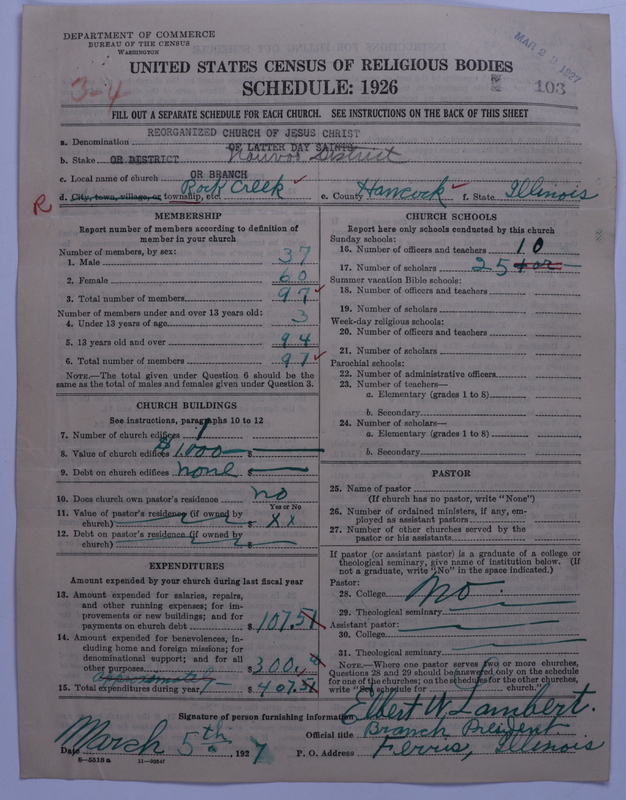 DEPARTMENT OF COMMERCE
BUREAU OF THE CENSUS
WASHINGTON
MAR 2 1927
UNITED STATES CENSUS OF RELIGIOUS BODIES
3-4
SCHEDULE: 1926
103
FILL OUT A SEPARATE SCHEDULE FOR EACH CHURCH. SEE INSTRUCTIONS ON THE BACK OF THIS SHEET
REORGANIZED CHURCH OF JESUS CHRIST
a. Denomination
OF LATTER DAY SAINTS
b. Stake OR DISTRICT Nauvoo District
c. Local name of church OR BRANCH
Rock Creek
R d. City, town, village, or township, etc. e. County Hancock f. State Illinois
MEMBERSHIP
Report number of members according to definition of
member in your church
Number of members, by sex:
1. Male 37
2. Female 60
3. Total number of members 97
Number of members under and over 13 years old:
4. Under 13 years of age 3
5. 13 years old and over 94
6. Total number of members 97
NOTE.—The total given under Question 6 should be the
same as the total of males and females given under Question 3.
CHURCH BUILDINGS
See instructions, paragraphs 10 to 12
7. Number of church edifices 1
8. Value of church edifices $1,000 $
9. Debt on church edifices none $
10. Does church own pastor's residence no
Yes or No
11. Value of pastor's residence (if owned by
church) $ xx
12. Debt on pastor's residence (if owned by
church) $
EXPENDITURES
Amount expended by your church during last fiscal year
13. Amount expended for salaries, repairs,
and other running expenses; for im-
provements or new buildings; and for
payments on church debt $ 107.51
14. Amount expended for benevolences, in-
cluding home and foreign missions; for
denominational support; and for all
other purposes $ 300.
approximately
15. Total expenditures during year $ 407.51
CHURCH SCHOOLS
Report here only schools conducted by this church
Sunday schools:
16. Number of officers and teachers 10
17. Number of scholars 25
Summer vacation Bible schools:
18. Number of officers and teachers
19. Number of scholars
Week-day religious schools:
20. Number of officers and teachers
21. Number of scholars
Parochial schools:
22. Number of administrative officers
23. Number of teachers—
a. Elementary (grades 1 to 8)
b. Secondary
24. Number of scholars—
a. Elementary (grades 1 to 8)
b. Secondary
PASTOR
25. Name of pastor
(If church has no pastor, write "None")
26. Number of ordained ministers, if any, em-
ployed as assistant pastors
27. Number of other churches served by the
pastor or his assistants
If pastor (or assistant pastor) is a graduate of a college or
theological seminary, give name of institution below. (If
not a graduate, write "No" in the space indicated.)
Pastor:
28. College No
29. Theological seminary
Assistant pastor:
30. College
31. Theological seminary
NOTE.—Where one pastor serves two or more churches,
Questions 28 and 29 should be answered only on the schedule
for one of the churches; on the schedules for the other churches,
write "See schedule for church."
Signature of person furnishing information Elbert W. Lambert.
Official title Branch President
Date March 5th 1927 P. O. Address Ferris, Illinois
8—5518a 11—9254f